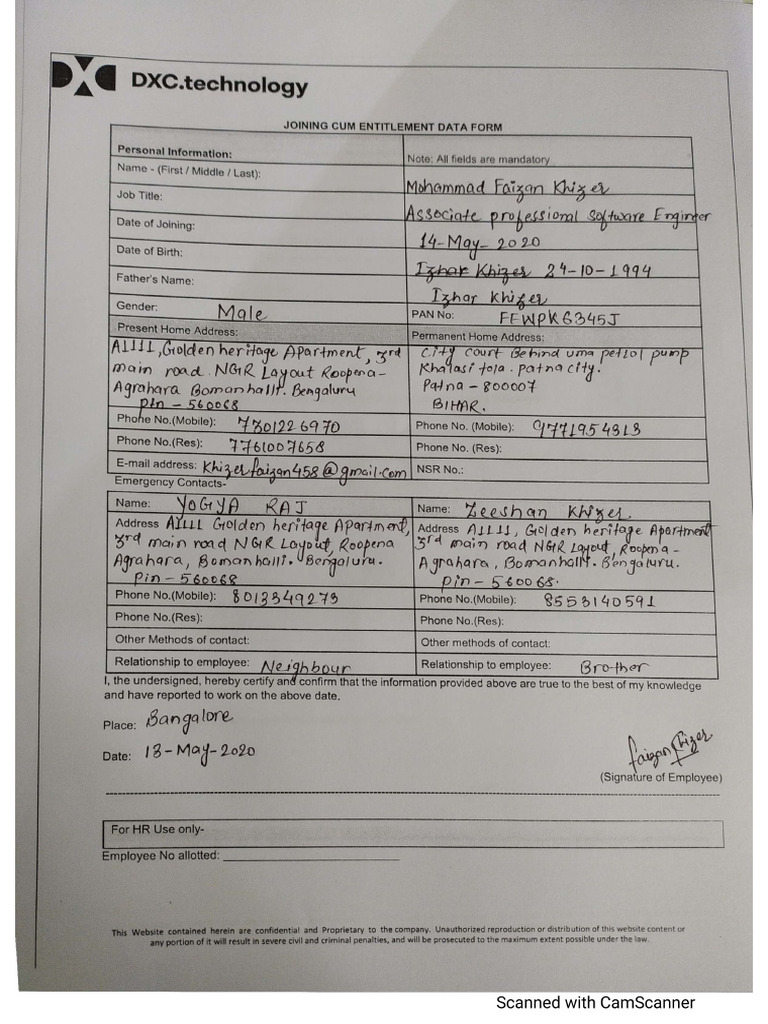 DXC.technology
JOINING CUM ENTITLEMENT DATA FORM
Personal Information:
Note: All fields are mandatory
Name - (First / Middle / Last):
Mohammad Faizan Khizer
Job Title:
Associate professional Software Enginner
Date of Joining:
14-May-2020
Date of Birth:
Izhar Khizer 24-10-1994
Father's Name:
Izhar Khizer
Gender: Male
PAN No: FEWPK6345J
Present Home Address:
A1111, Golden heritage Apartment, 3rd
main road NGR Layout Roopena-
Agrahara Bomanhalli. Bengaluru
Pin - 560068
Permanent Home Address:
City court Behind uma petrol pump
Khalasi tola. patna city.
Patna - 800007
BIHAR.
Phone No.(Mobile): 7301226970
Phone No. (Mobile): 9771954313
Phone No.(Res): 7761007658
Phone No. (Res):
E-mail address: Khizerfaizan458@gmail.com
NSR No.:
Emergency Contacts-
Name: YOGYA RAJ
Name: Zeeshan Khizer.
Address A1111 Golden heritage Apartment,
3rd main road NGR Layout, Roopena
Agrahara, Bomanhalli. Bengaluru.
Pin-560068
Address A1111, Golden heritage Apartment
3rd main road NGR Layout, Roopena-
Agrahara, Bomanhalli. Bengaluru.
Pin - 560068.
Phone No.(Mobile): 8013349273
Phone No.(Mobile): 8553140591
Phone No.(Res):
Phone No.(Res):
Other Methods of contact:
Other methods of contact:
Relationship to employee: Neighbour
Relationship to employee: Brother
I, the undersigned, hereby certify and confirm that the information provided above are true to the best of my knowledge
and have reported to work on the above date.
Place: Bangalore
Date: 13-May-2020
faizan Khizer
(Signature of Employee)
For HR Use only-
Employee No allotted:
This Website contained herein are confidential and Proprietary to the company. Unauthorized reproduction or distribution of this website content or
any portion of it will result in severe civil and criminal penalties, and will be prosecuted to the maximum extent possible under the law.
Scanned with CamScanner